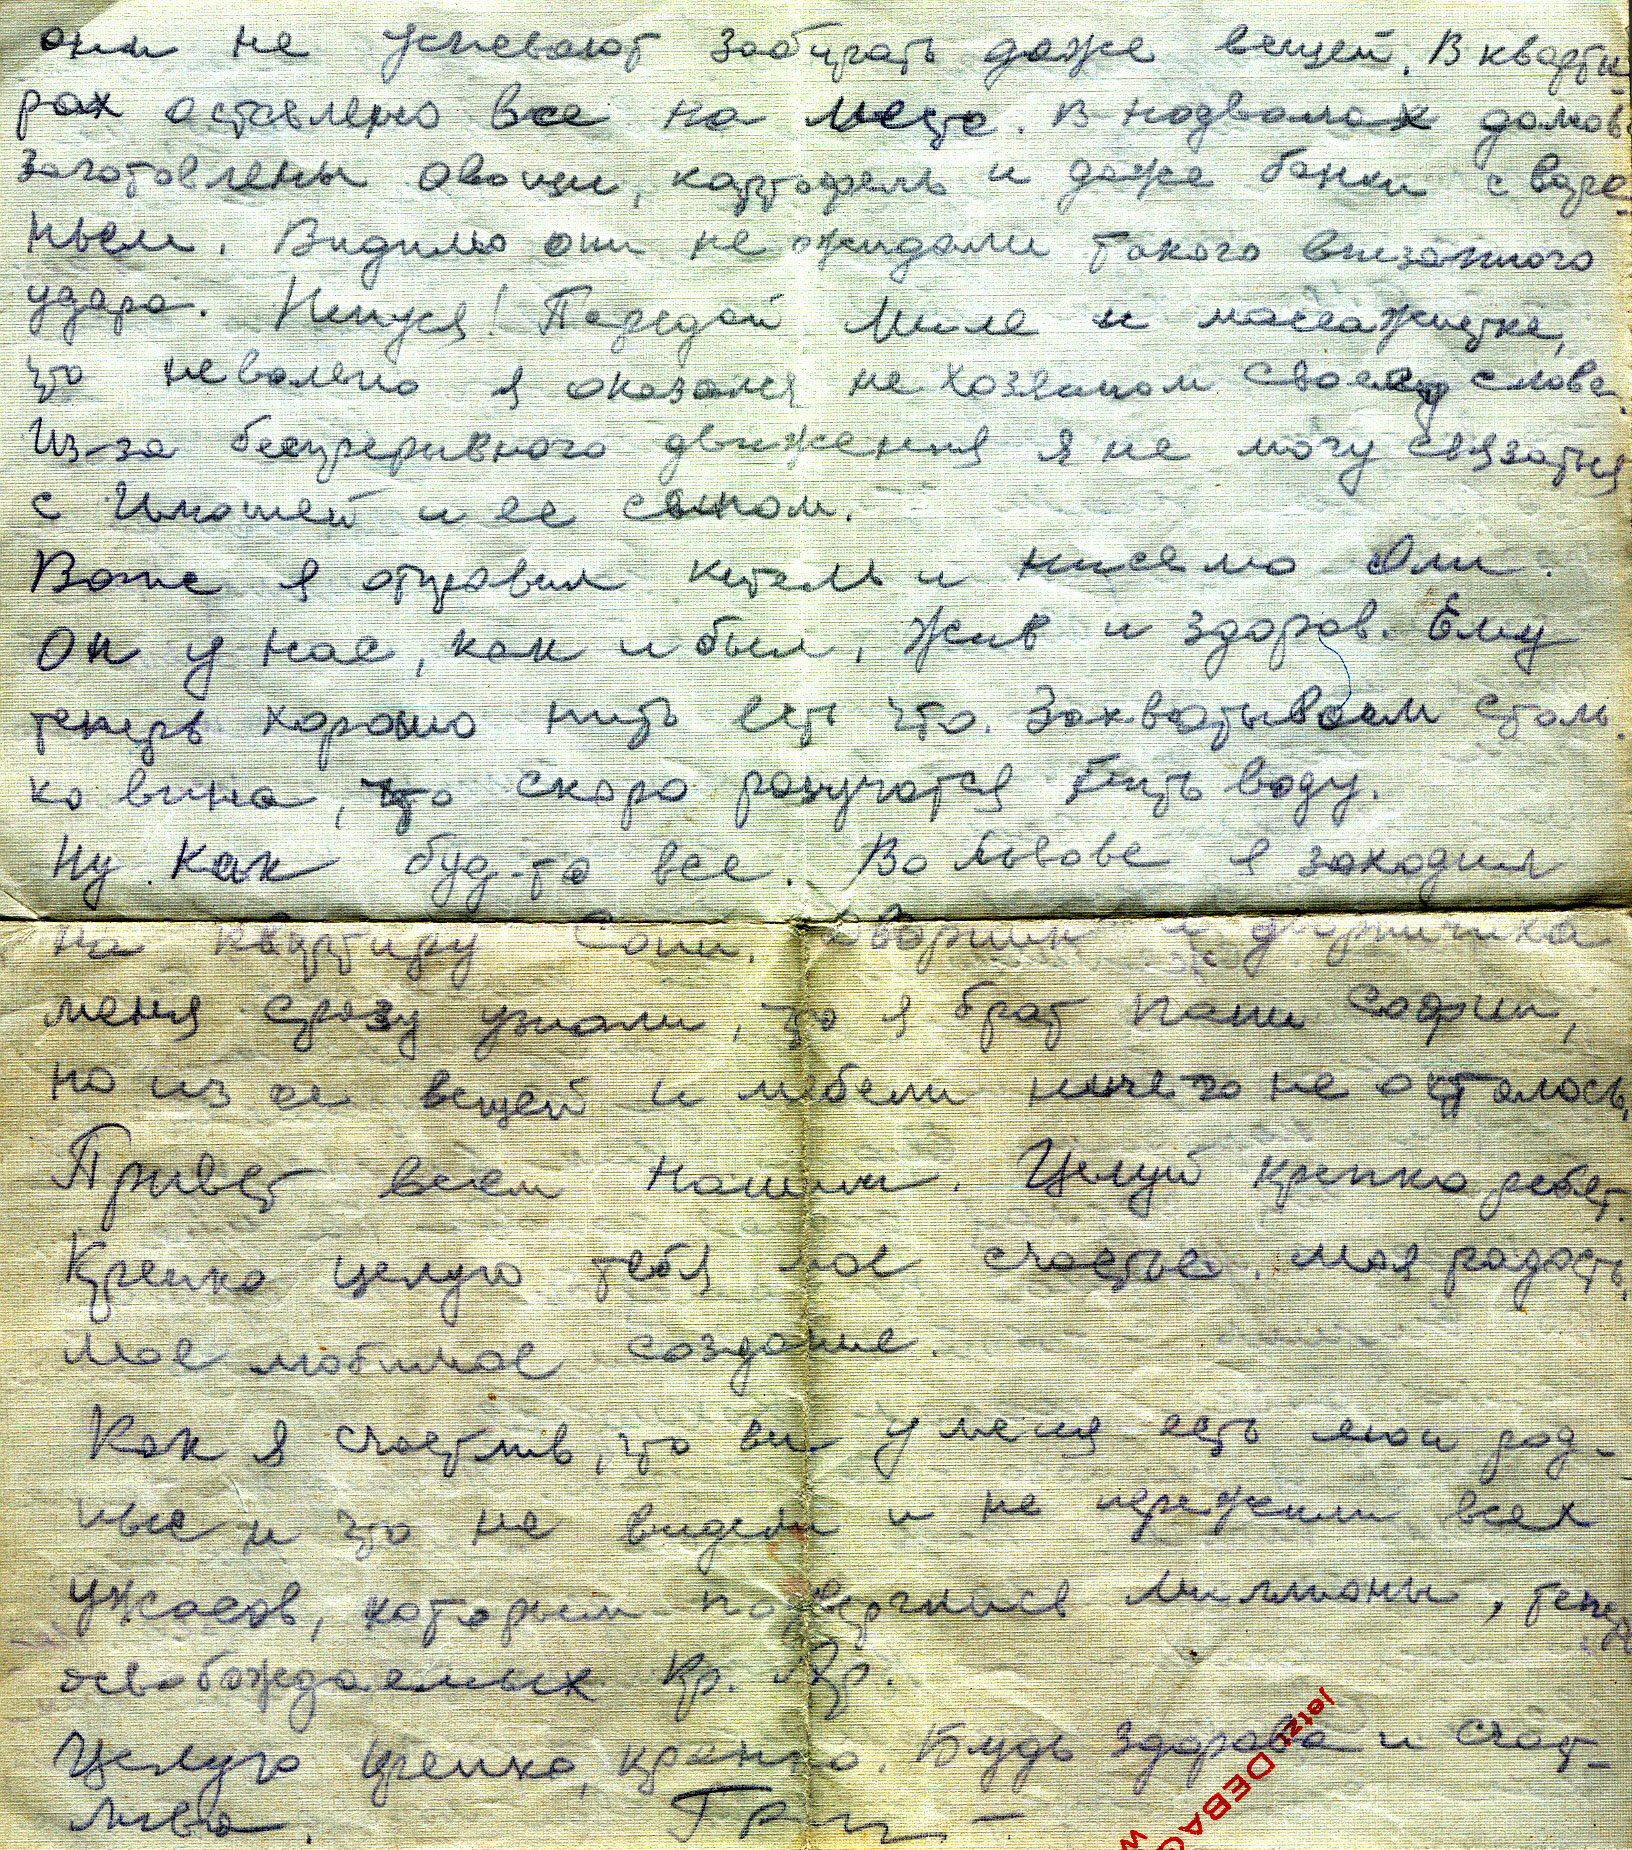 они не успевают забирать даже вещей. В кварти-
рах оставлено все на месте. В подвалах домов
заготовлены овощи, картофель и даже банки с варе-
ньем. Видимо они не ожидали такого внезапного
удара. Нинуся! Передай Миле и массажистке,
что невольно я оказался не хозяином своему слову.
Из-за беспрерывного движения я не могу связаться
с и ее сыном.
Ване я отправил китель и письмо Оли.
Он у нас, как и был. Жив и здоров. Ему
теперь хорошо пить есть что. Захватываем столь-
ко вина, что скоро разучатся пить воду.
Ну как буд-то все. Во Львове я заходил
на квартиру Сони. Дворник и дворничиха
меня сразу узнали, что я брат пани Софии,
но из ее вещей и мебели ничего не осталось.
Привет всем нашим. Целуй крепко ребят.
Крепко целую тебя мое счастье, моя радость,
мое любимое создание.
Как я счастлив, что вы у меня есть мои род-
ные и что не видели и не пережили всех
ужасов, которым подверглись миллионы, теперь
освобождаемых Кр. Ар.
Целую крепко, крепко. Будь здорова и счаст-
лива.
jetzt DEBAC
W